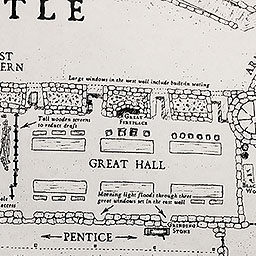 TLE
ST
ERN
Large windows in the west wall include built-in seating
Tall wooden screens
to reduce draft
GREAT
FIREPLACE
GREAT HALL
Morning light floods through three
great windows set in the east wall
PENTICE
GRINDING
STONE